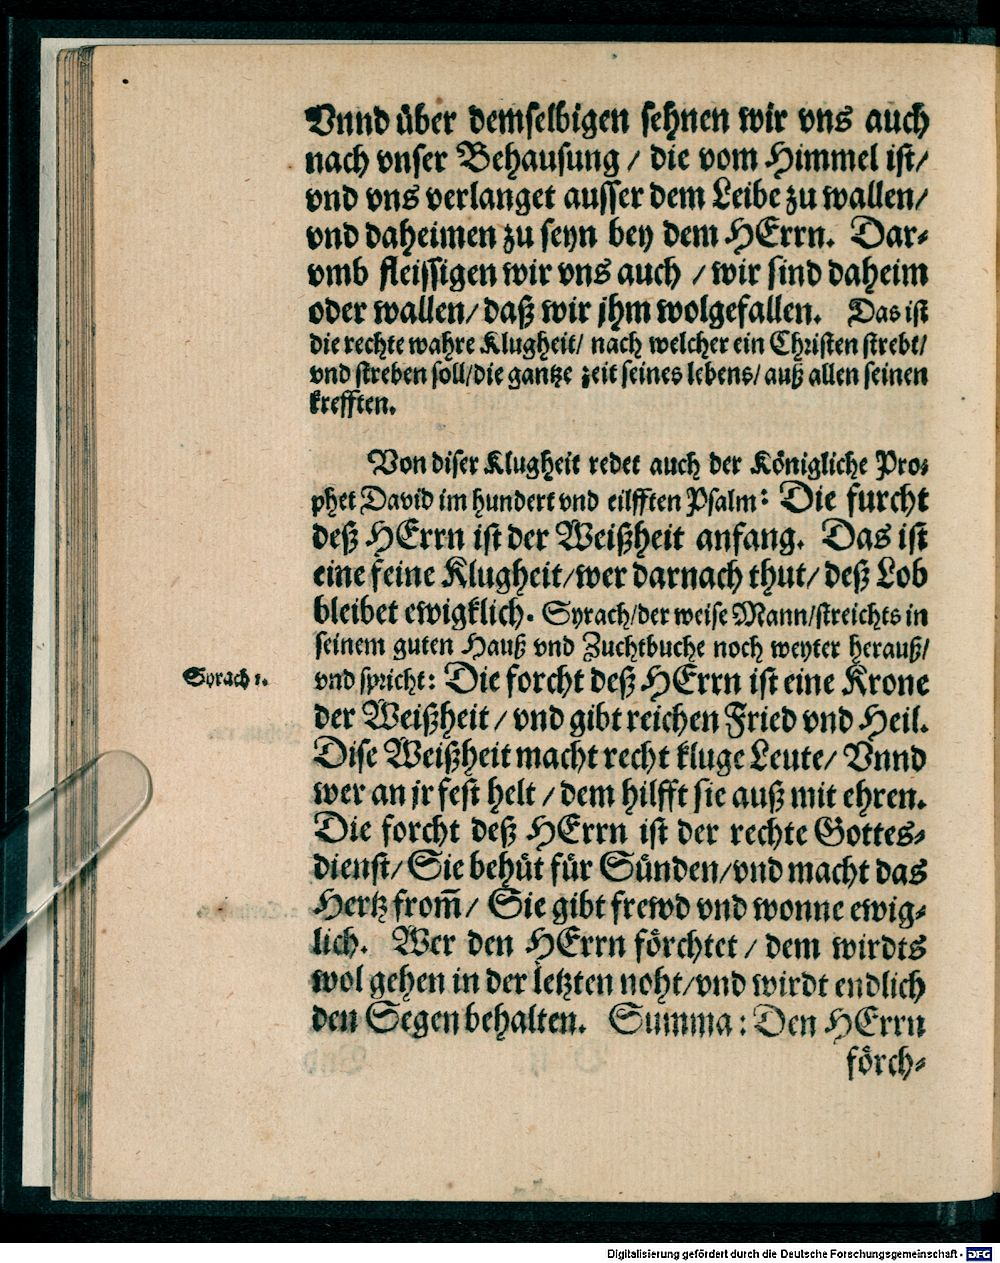 Vnnd über demselbigen sehnen wir vns auch
nach vnser Behausung / die vom Himmel ist/
vnd vns verlanget ausser dem Leibe zu wallen/
vnd daheimen zu seyn bey dem HErrn. Dar-
vmb fleissigen wir vns auch / wir sind daheim
oder wallen/ daß wir jhm wolgefallen. Das ist
die rechte wahre Klugheit/ nach welcher ein Christen strebt/
vnd streben soll/die gantze zeit seines lebens/ auß allen seinen
krefften.
Von diser Klugheit redet auch der Königliche Pro-
phet David im hundert vnd eilfften Psalm: Die furcht
deß HErrn ist der Weißheit anfang. Das ist
eine feine Klugheit/wer darnach thut/ deß Lob
bleibet ewigklich. Syrach/der weise Mann/streichts in
seinem guten Hauß vnd Zuchtbuche noch weyter herauß/
Syrach 1.
vnd spricht: Die forcht deß HErrn ist eine Krone
der Weißheit / vnd gibt reichen Fried vnd Heil.
Dise Weißheit macht recht kluge Leute/ Vnnd
wer an jr fest helt / dem hilfft sie auß mit ehren.
Die forcht deß HErrn ist der rechte Gottes-
dienst/ Sie behüt für Sünden/vnd macht das
Hertz from̃/ Sie gibt frewd vnd wonne ewig-
lich. Wer den HErrn förchtet / dem wirdts
wol gehen in der letzten noht/vnd wirdt endlich
den Segen behalten. Summa: Den HErrn
förch-
Digitalisierung gefördert durch die Deutsche Forschungsgemeinschaft - DFG